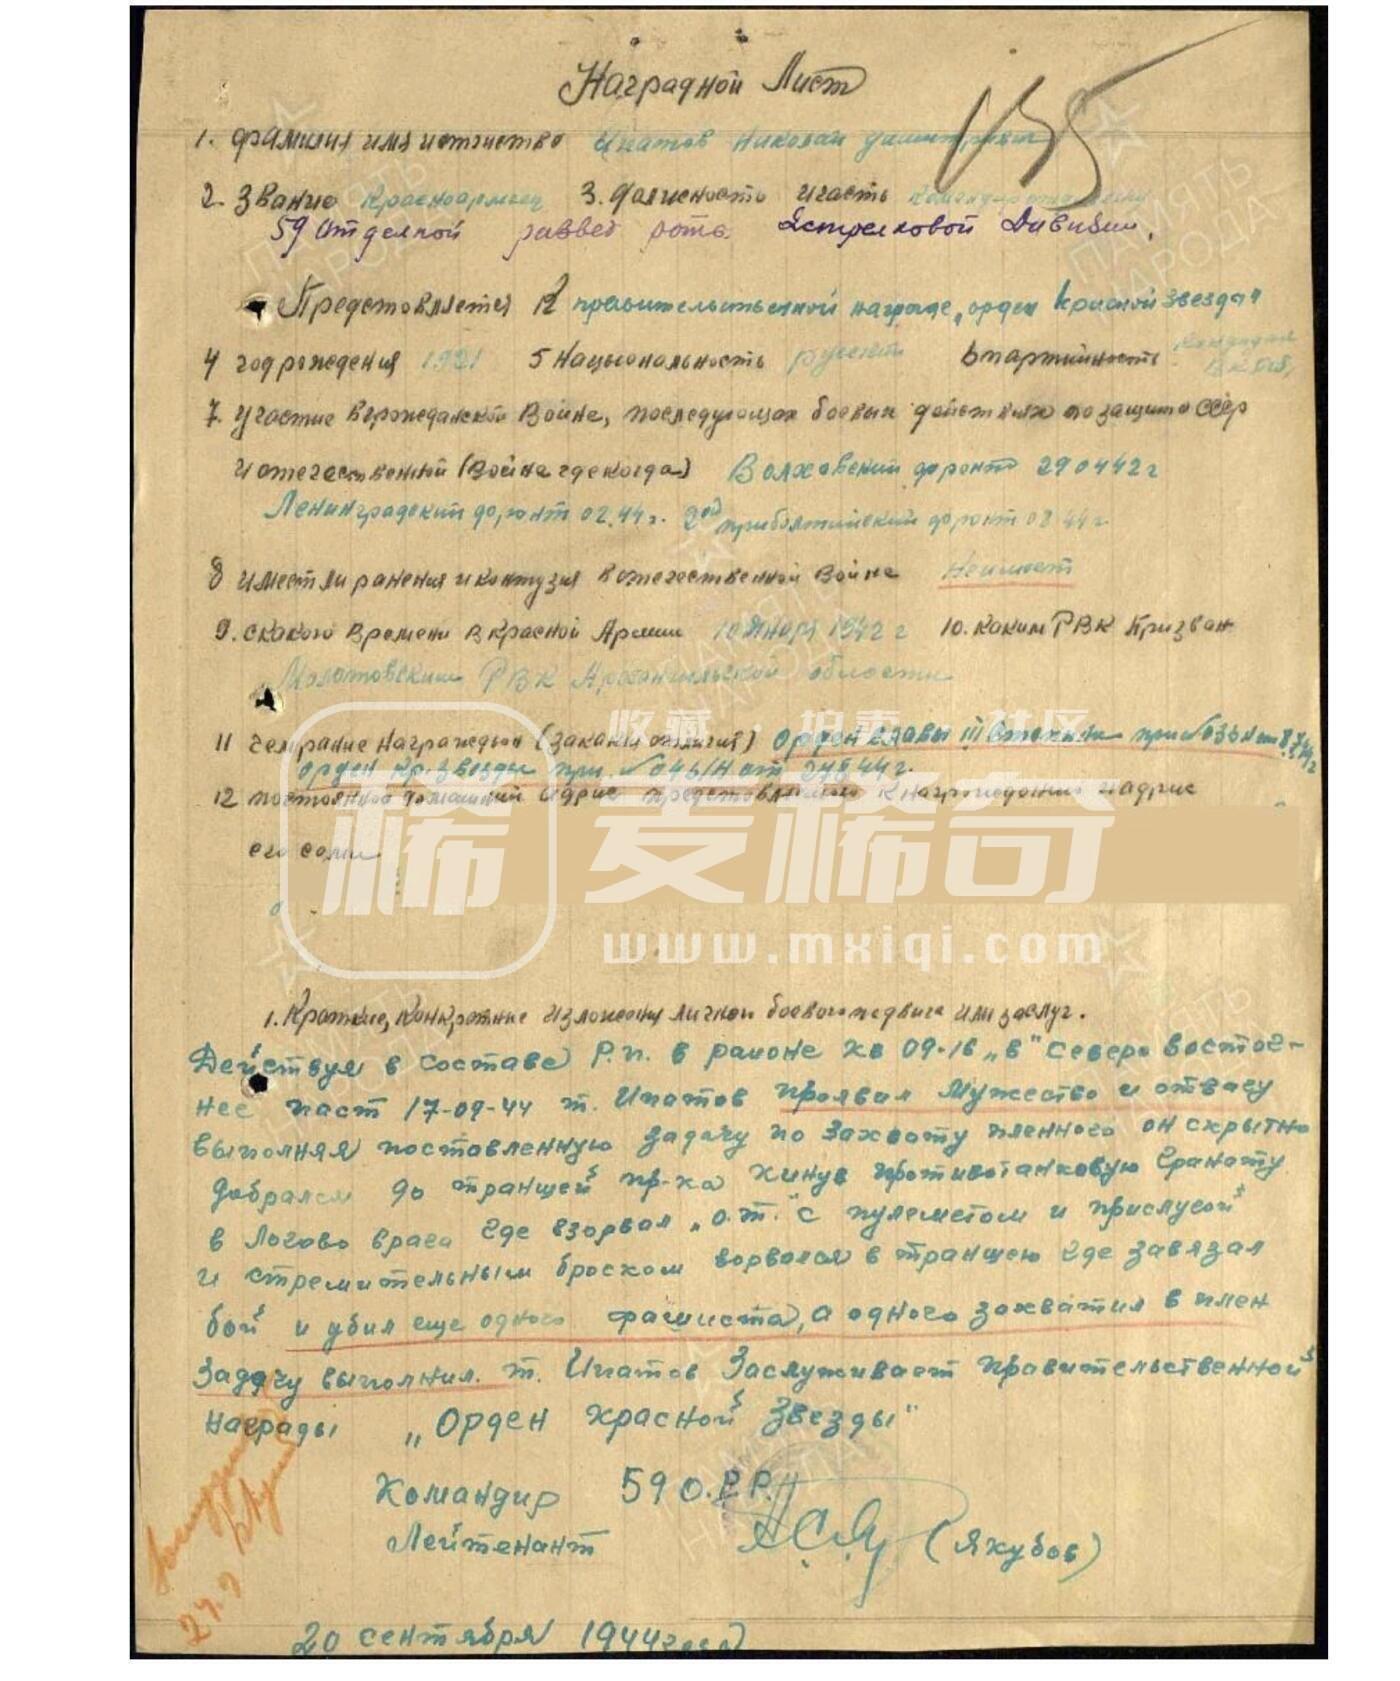 Наградной Лист
1. фамилия имя и отчество Ипатов Николай
2. Звание Красноармеец 3. Должность и часть командир
59 Отделной развед рота 2 стрелковой Дивизии.
Представляется к правительственной награде „орден Красной Звезда"
4 год рождения 1921 5 Национальность русский 6 партийность кандидат
ВКПб,
7. Участие в гражданской Войне, последующих боевых действиях по защите СССР
и отечественной (Война где когда) Волховский фронт 290442 г
Ленинградский фронт 02.44 г. 2ой прибалтийский фронт 08 44 г
8 имеет ли ранения и контузия в отечественной Войне Не имеет
9. с какого времени в Красной Армии 10 Января 1942 г 10. каким РВК Призван
Молотовским РВК Архангельской области
11 чем ранее награжден (за какие отличия) Орден славы III степени при №
орден Кр. Звезды пр. №
12 постоянное домашний адрис представляемого к награждению и адрис
его семи
收藏 · 拍卖 · 社区
稀 麦稀奇
www.mxiqi.com
1. Краткие, Конкретние изложения личной боевого подвига или заслуг.
Действуя в составе Р.п. в районе кв 09-16 „в" северо восточ-
нее 17-09-44 т. Ипатов проявил мужество и отвагу
выполняя поставленную задачу по захвату пленного он скрытно
добрался до траншей пр-ка кинув противотанковую гранату
в логово врага где взорвал „о.т." с пулеметом и прислугой
и стремительным броском ворвался в траншею где завязал
бой и убил еще одного фашиста, а одного захватил в плен
Задачу выполнил. т. Ипатов Заслуживает правительственной
награды „Орден красной Звезды"
Командир 59 О.Р.Р.
Лейтенант (Якубов)
20 сентября 1944 года